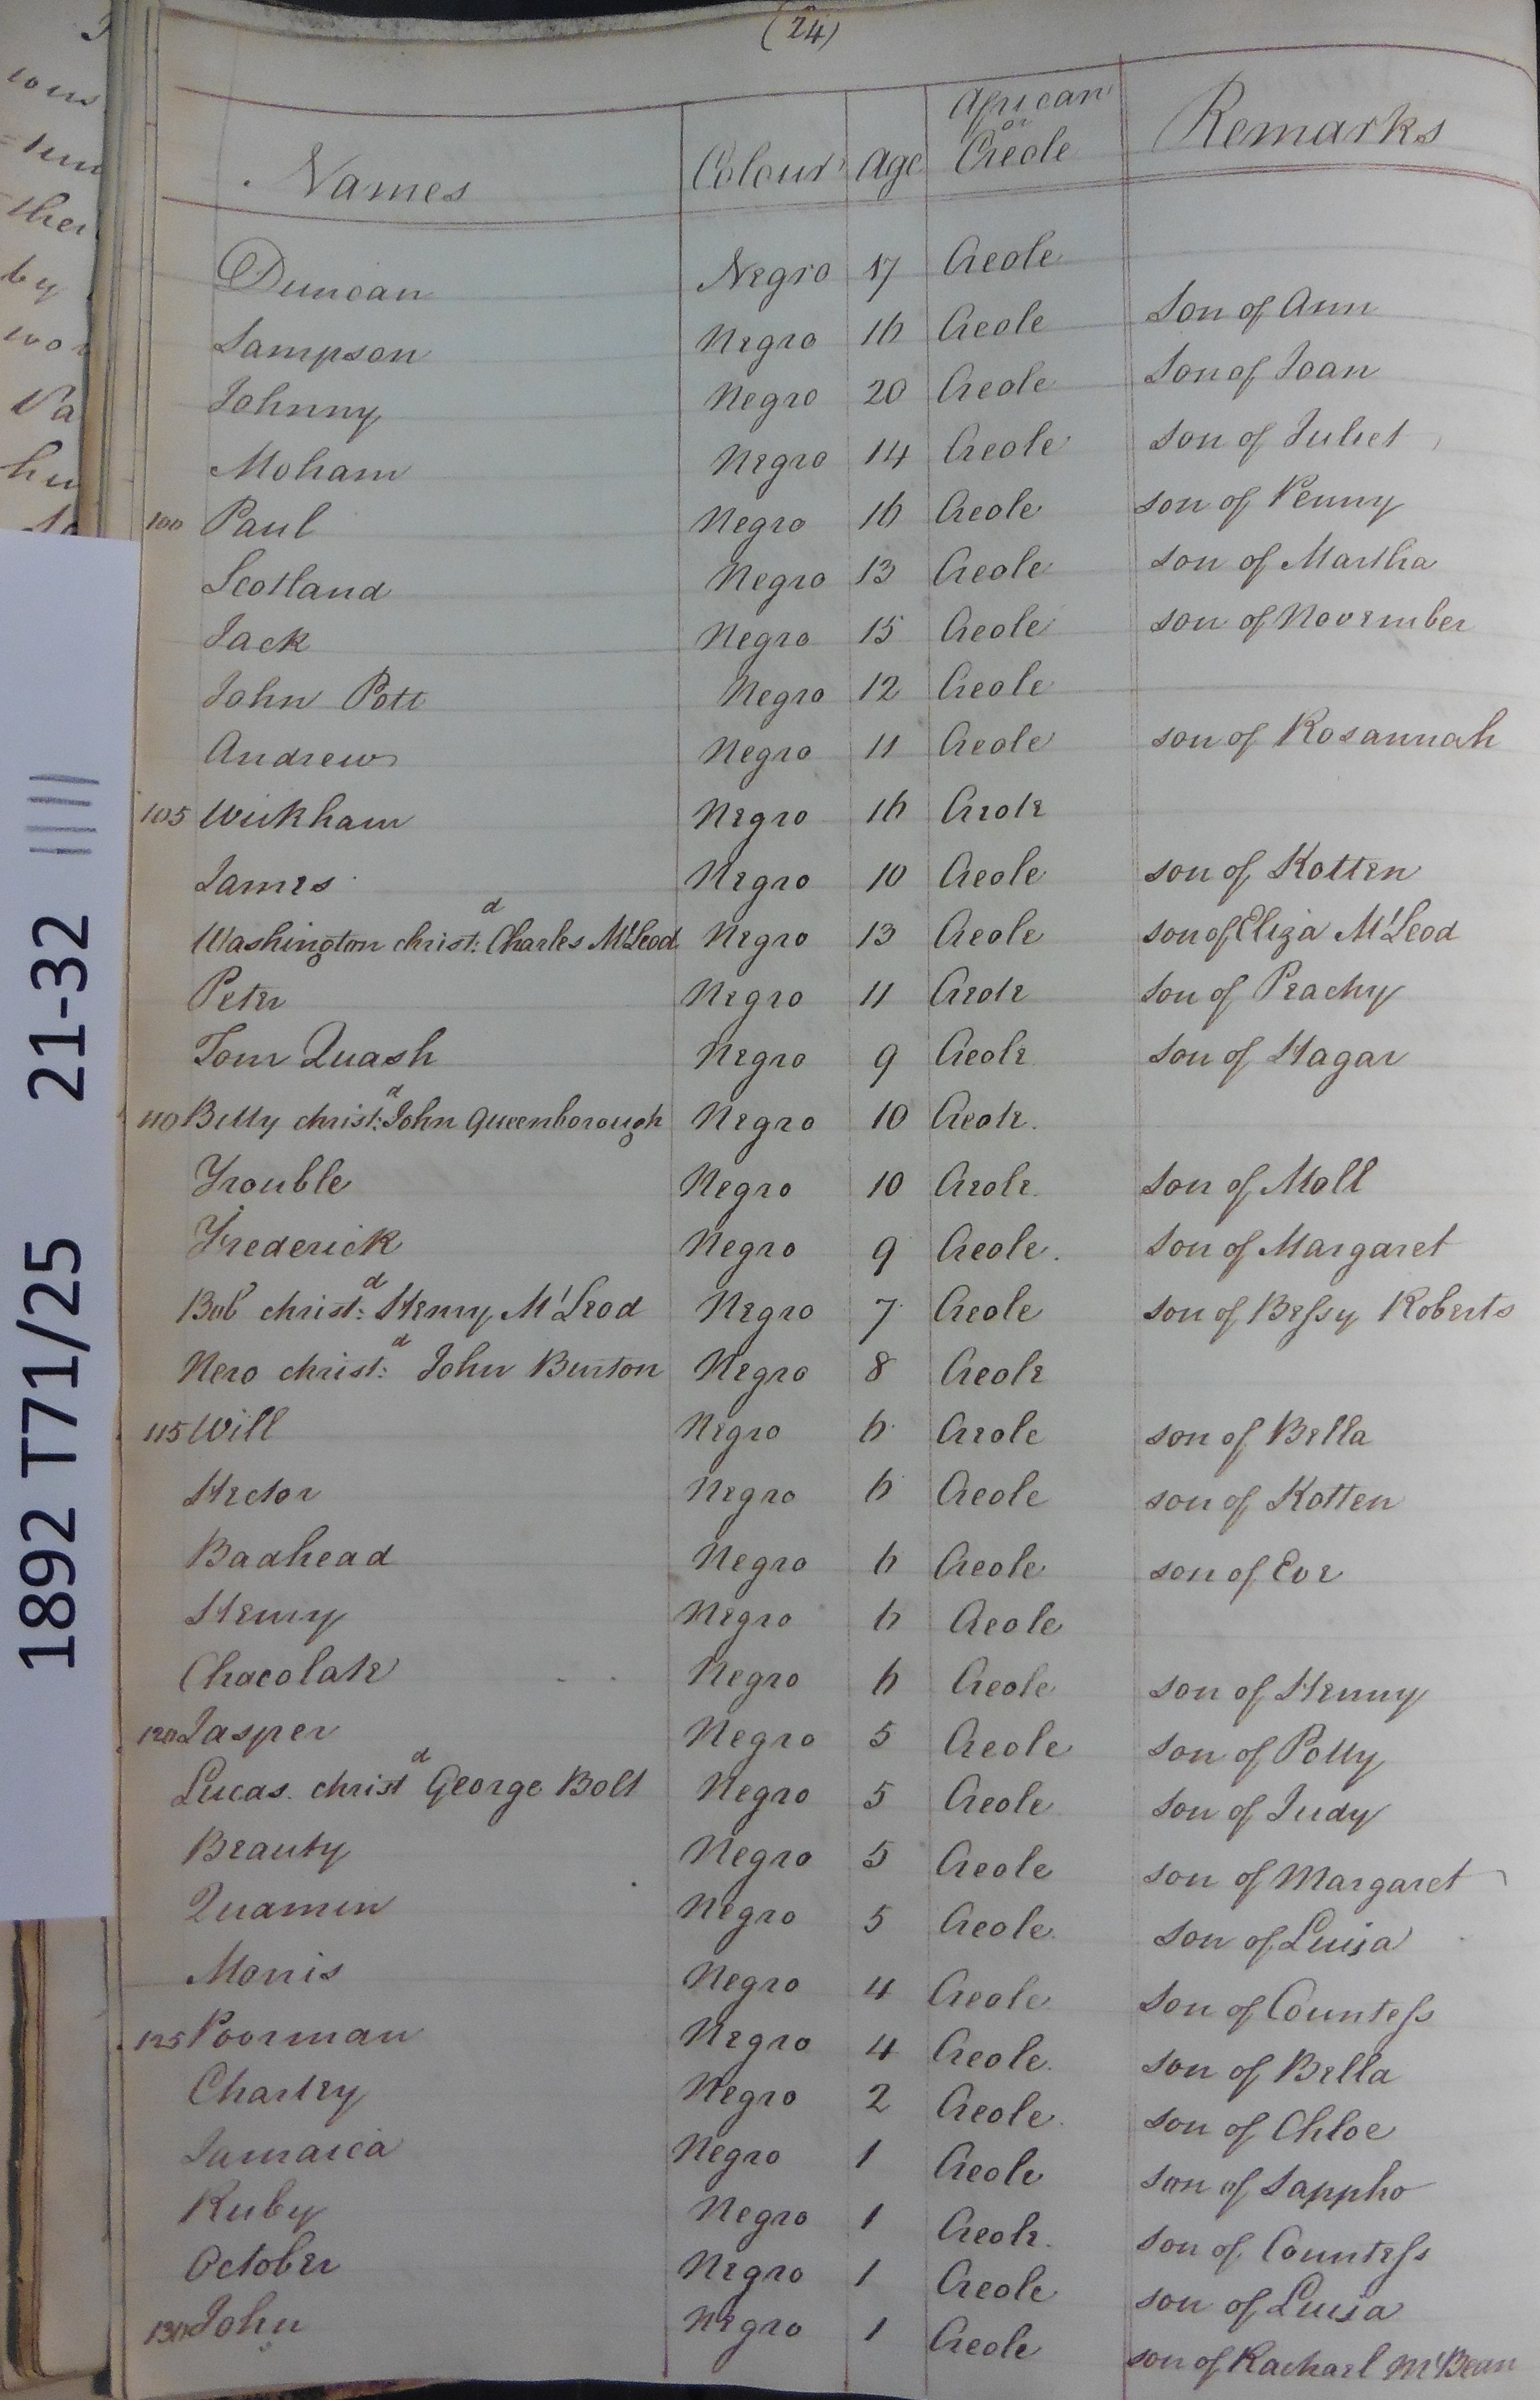 (24)
Names Colour Age African or Creole Remarks
Duncan Negro 17 Creole
Sampson Negro 16 Creole Son of Ann
Johnny Negro 20 Creole Son of Joan
Moham Negro 14 Creole Son of Juliet
100 Paul Negro 16 Creole son of Penny
Scotland Negro 13 Creole son of Martha
Jack Negro 15 Creole son of November
John Pott Negro 12 Creole
Andrew Negro 11 Creole son of Rosannah
105 Wickham Negro 16 Creole
James Negro 10 Creole son of Kotten
Washington christ:d Charles M'Leod Negro 13 Creole son of Eliza M'Leod
Peter Negro 11 Creole Son of Peachy
Tom Quash Negro 9 Creole Son of Hagar
110 Billy christ:d John Queenborough Negro 10 Creole.
Trouble Negro 10 Creole. Son of Moll
Frederick Negro 9 Creole. Son of Margaret
Bob christ:d Henry M'Leod Negro 7 Creole son of Bessy Roberts
Nero christ:d John Burton Negro 8 Creole
115 Will Negro 6 Creole son of Bella
Hector Negro 6 Creole son of Kotten
Badhead Negro 6 Creole son of Eve
Henry Negro 6 Creole
Chocolate Negro 6 Creole son of Henny
120 Jasper Negro 5 Creole son of Polly
Lucas. christd George Bolt Negro 5 Creole Son of Judy
Beauty Negro 5 Creole son of Margaret
Quamin Negro 5 Creole. Son of Luisa
Morris Negro 4 Creole Son of Countess
125 Poorman Negro 4 Creole. Son of Bella
Charley Negro 2 Creole. Son of Chloe
Jamaica Negro 1 Creole Son of Sappho
Ruby Negro 1 Creole. Son of Countess
October Negro 1 Creole son of Luisa
130 John Negro 1 Creole son of Rachael M'Bean
1892 T71/25 21-32